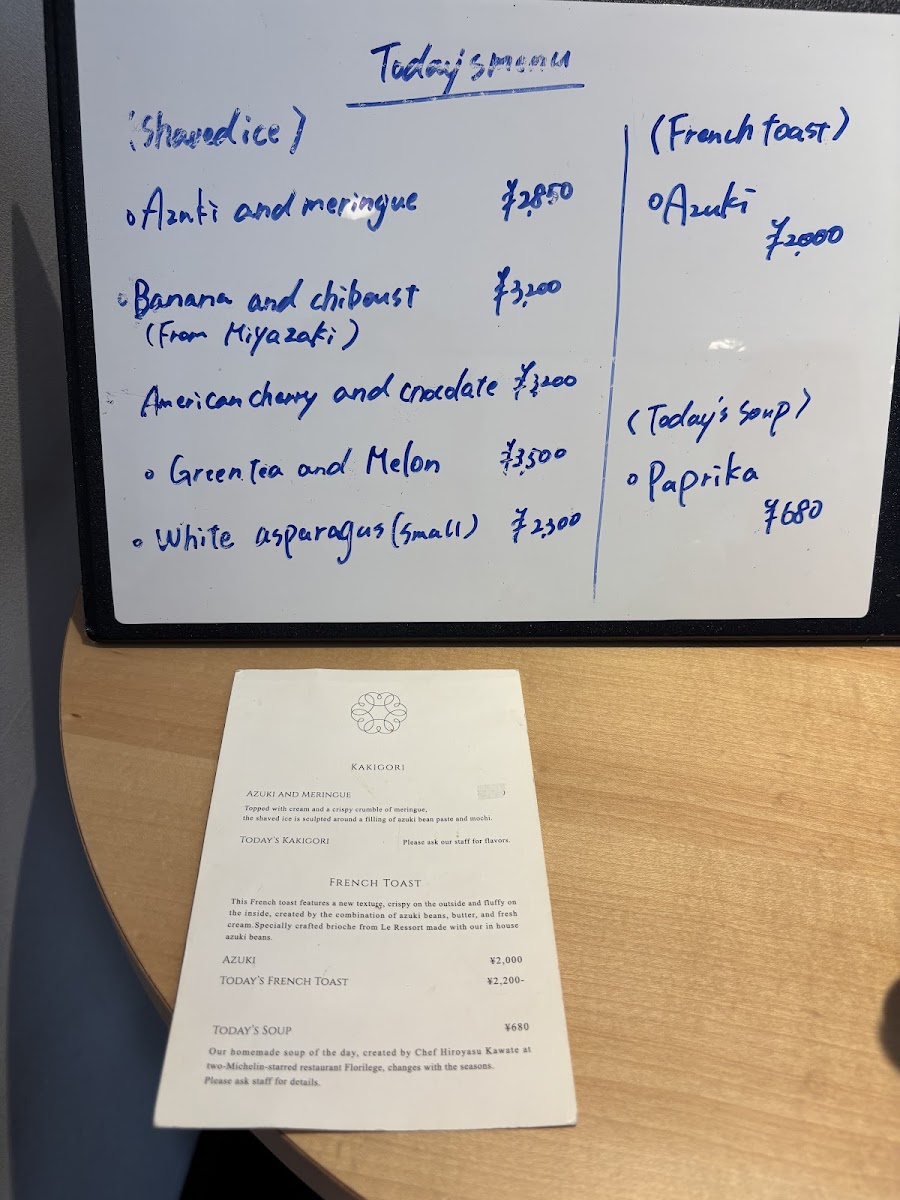 Today's menu
(Shaved ice)
Azuki and meringue ¥2,850
Banana and chiboust ¥3,200
(From Miyazaki)
American cherry and chocolate ¥3,200
Green tea and Melon ¥3,500
White asparagus (small) ¥2,300
(French toast)
Azuki
¥2,000
(Today's soup)
Paprika
¥680
KAKIGORI
AZUKI AND MERINGUE
Topped with cream and a crispy crumble of meringue,
the shaved ice is sculpted around a filling of azuki bean paste and mochi.
TODAY'S KAKIGORI Please ask our staff for flavors.
FRENCH TOAST
This French toast features a new texture, crispy on the outside and fluffy on
the inside, created by the combination of azuki beans, butter, and fresh
cream.Specially crafted brioche from Le Ressort made with our in house
azuki beans.
AZUKI ¥2,000
TODAY'S FRENCH TOAST ¥2,200-
TODAY'S SOUP ¥680
Our homemade soup of the day, created by Chef Hiroyasu Kawate at
two-Michelin-starred restaurant Florilege, changes with the seasons.
Please ask staff for details.